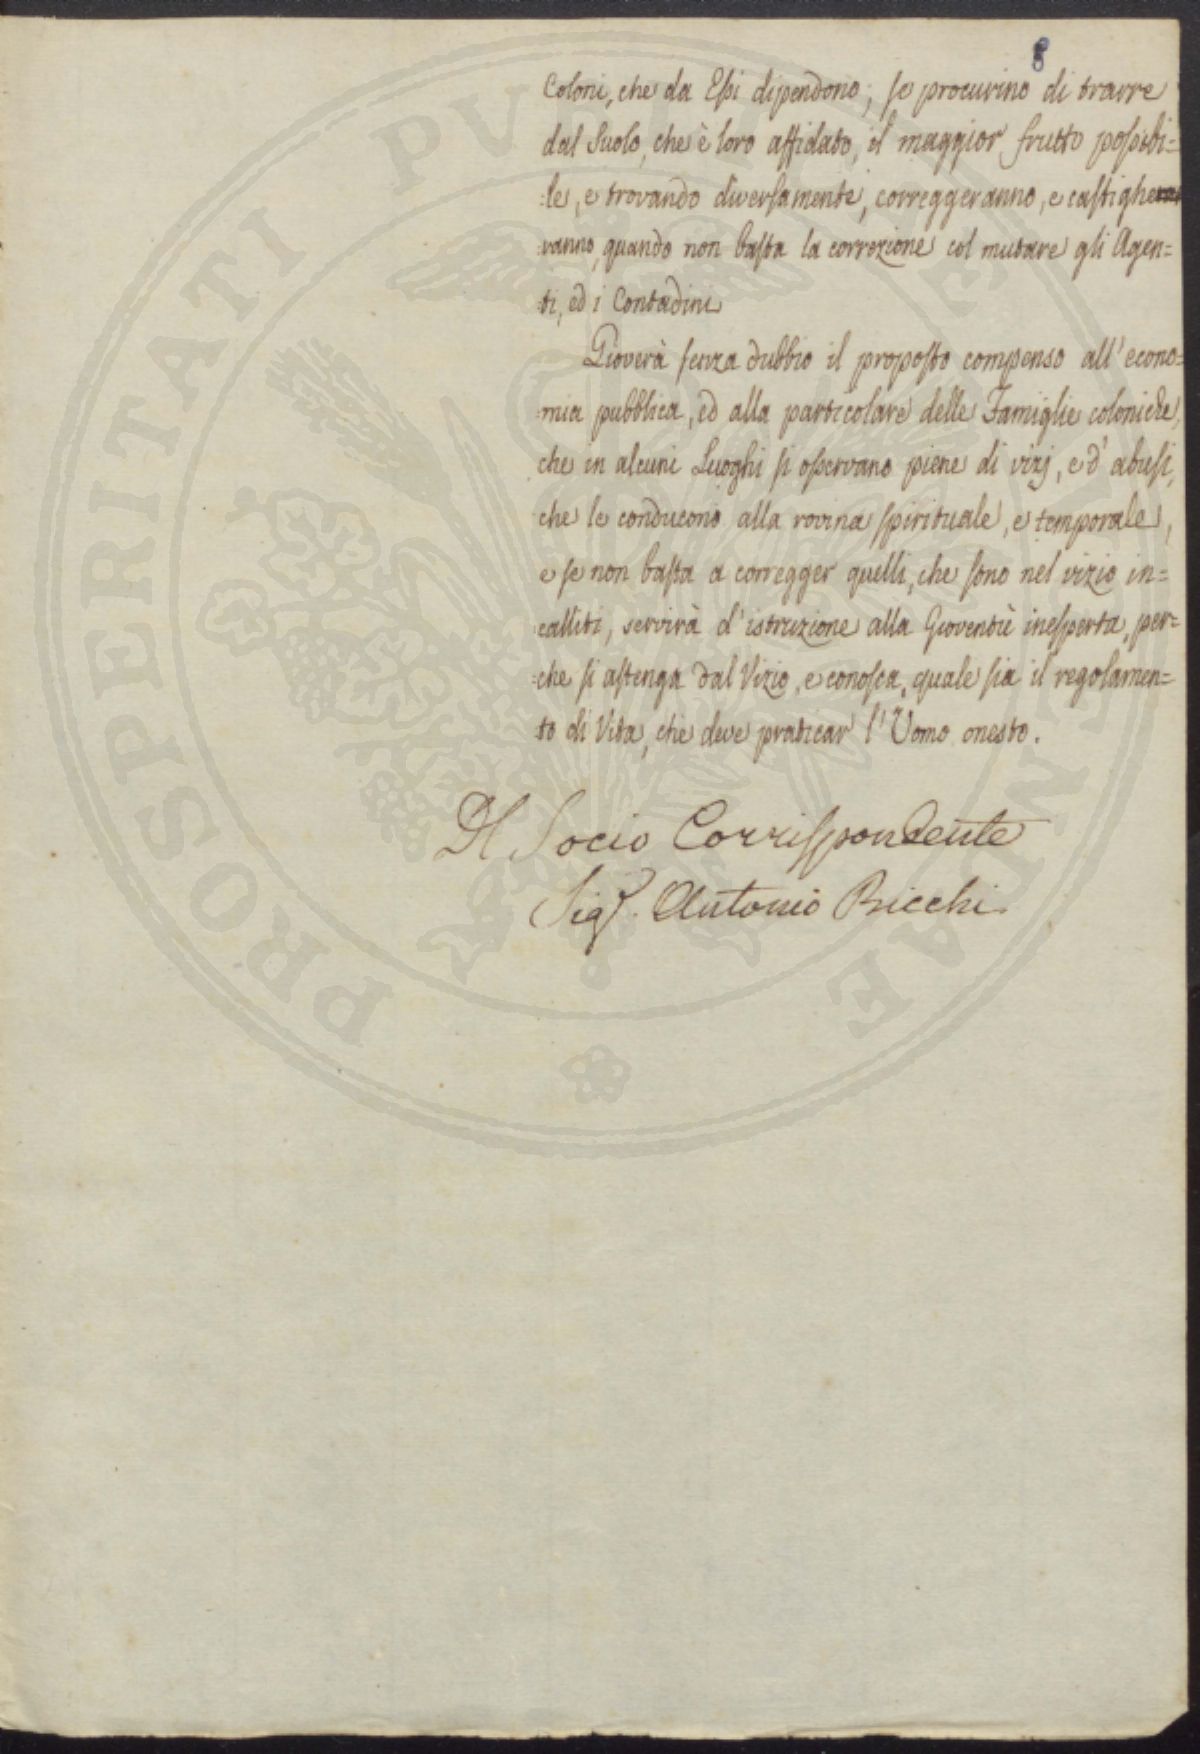 8
Coloni, che da Essi dipendono; se procurino di trarre
dal Suolo, che è loro affidato, il maggior frutto possibi=
=le, e trovando diversamente, correggeranno, e castighe
ranno, quando non basta la correzione col mutare gli Agen=
=ti, ed i Contadini
Gioverà senza dubbio il proposto compenso all'econo=
=mia pubblica, ed alla particolare delle Famiglie coloniche,
che in alcuni Luoghi si osservano piene di vizj, e d'abusi,
che le conducono alla rovina spirituale, e temporale,
e se non basta a corregger quelli, che sono nel vizio in=
=calliti, servirà d'istruzione alla Gioventù inesperta, per=
=che si astenga dal Vizio, e conosca, quale sia il regolamen=
to di Vita, che deve praticar l'Uomo onesto.
Il Socio Corrispondente
Sigr. Antonio Bicchi
PROSPERITATI PVBLICAE AVGENDAE